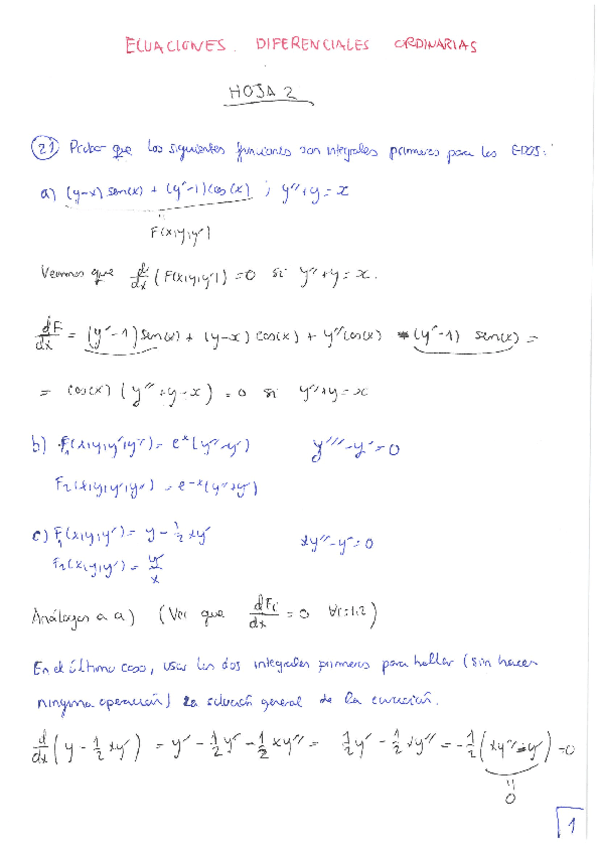 ECUACIONES DIFERENCIALES ORDINARIAS
HOJA 2
(21) Probar que las siguientes funciones son integrales primeras para las EDOS:
a) (y-x) sen(x) + (y'-1) cos(x) ; y''+y = x
F(x,y,y')
Veamos que d/dx (F(x,y,y')) = 0 si y''+y = x.
dF/dx = (y'-1) sen(x) + (y-x) cos(x) + y'' cos(x) - (y'-1) sen(x) =
= cos(x) (y''+y-x) = 0 si y''+y = x
b) F₁(x,y,y',y'') = e^x (y''-y') y'''-y' = 0
F₂(x,y,y',y'') = e^-x (y''+y')
c) F₁(x,y,y') = y - 1/2 xy' xy''-y' = 0
F₂(x,y,y') = y'/x
Análogos a a) (Ver que dFi/dx = 0 ∀i=1,2)
En el último caso, usar las dos integrales primeras para hallar (sin hacer
ninguna operación) la solución general de la ecuación.
d/dx (y - 1/2 xy') = y' - 1/2 y' - 1/2 xy'' = 1/2 y' - 1/2 xy'' = -1/2 (xy''-y') = 0
=
0
1